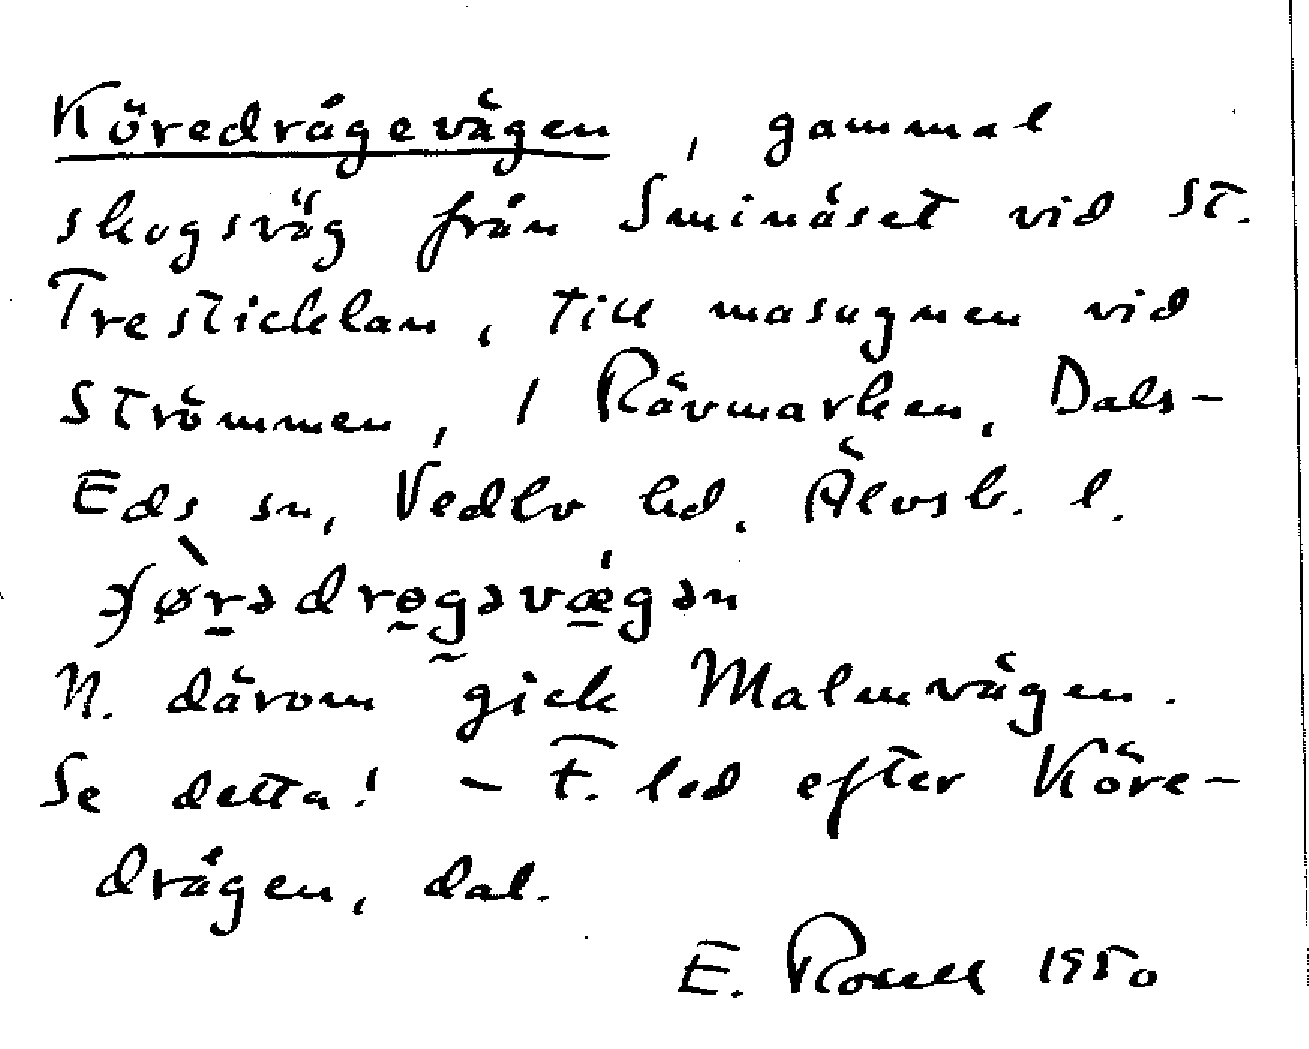 Köredrågevägen, gammal
skogsväg från Sminäset vid St.
Tresticklan, till masugnen vid
Strömmen, i Rävmarken, Dals-
Eds sn, Vedbo hd. Älvsb. l.
N. därom gick Malmvägen.
Se detta! – F. led efter Köre-
drågen, dal.
E. Rosell 1950